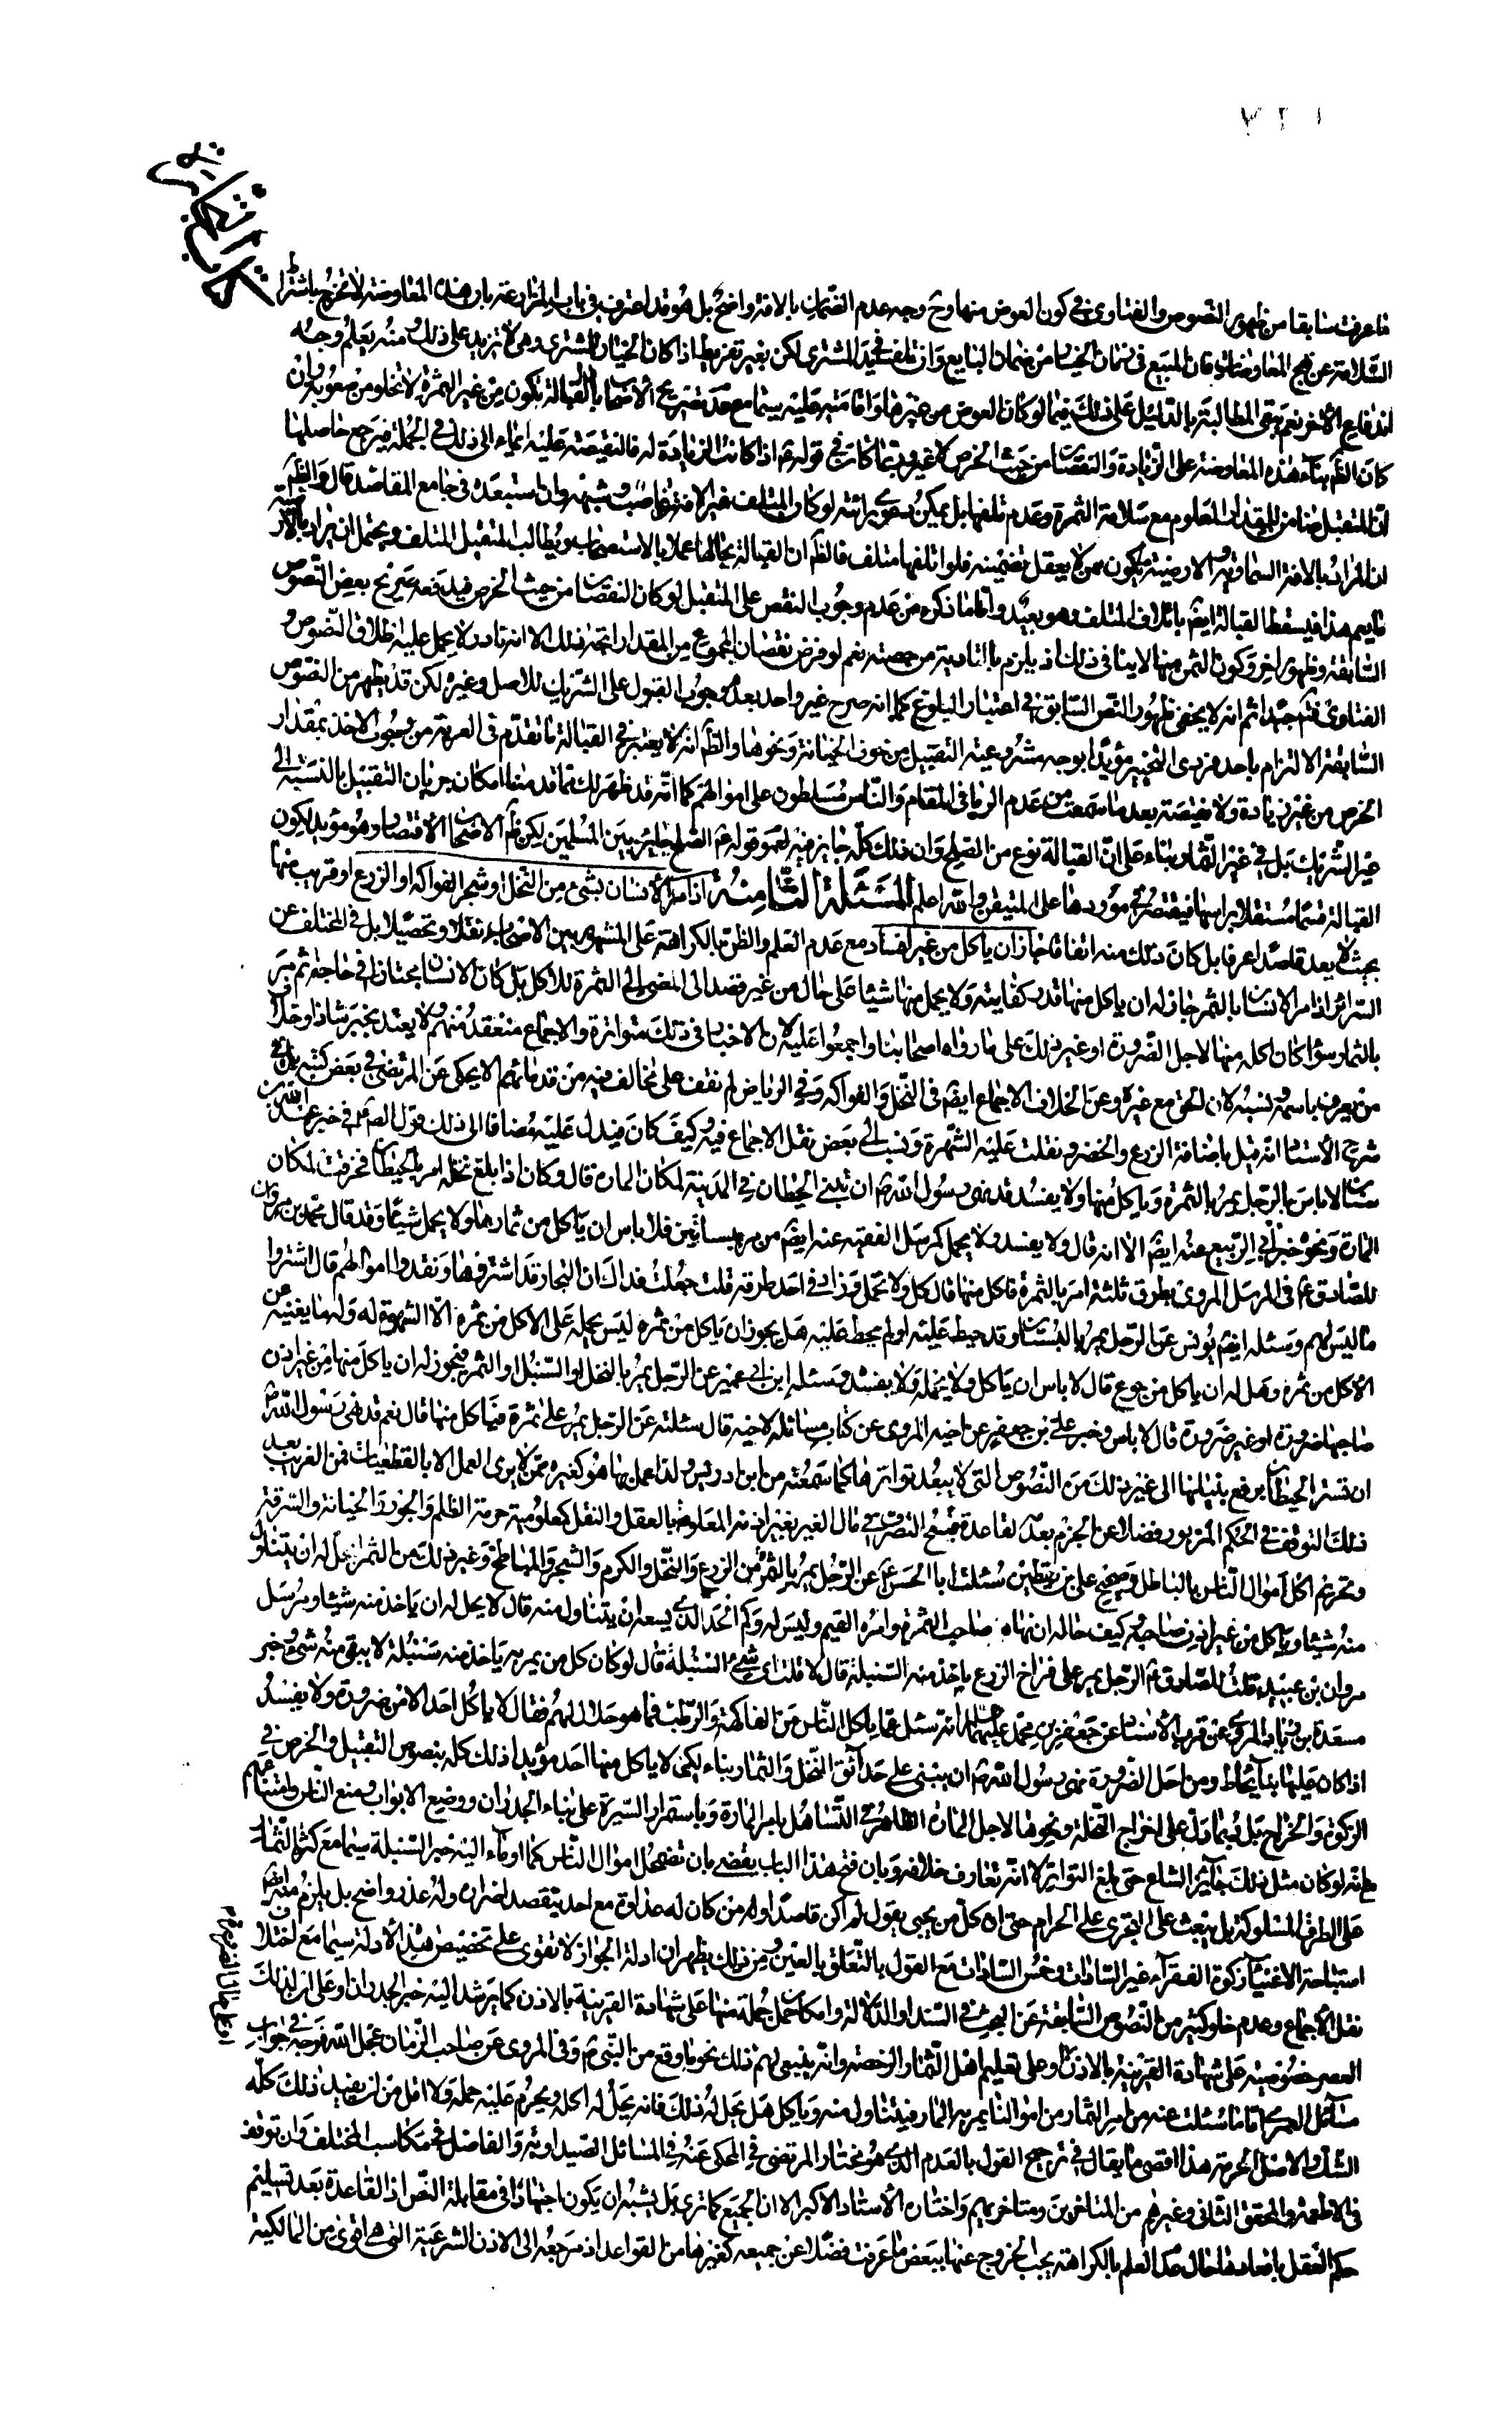 كتاب التجارة
ما عرفت سابقا من ظهور النصوص والفتاوى في كون العوض منها وح وجه عدم الضمان بالافة واضح بل هو قد اعترف في باب المزارعة بان هذه المعاوضة لا تخرج باشتراط
السلامة عن نهج المعاوضات فان المبيع في زمان الخيار من ضمان البايع وان تلف في يد المشتري لكن بغير تفريط اذا كان الخيار للمشتري وهي لا تزيد على ذلك ومنه يعلم وجه
اندفاع الاخر نعم يبقى المطالبة بالدليل على ذلك فيما لو كان العوض من غيرها واقامته عليه سيما مع تصريح الاصحاب بان القبالة تكون من غير الثمرة لا تخلو من صعوبة وان
كان الظم بناء هذه المعاوضة على الزيادة والنقصان من حيث الخرص لا غير وربما كان في قوله ع اذا كانت الزيادة له فالنقيصة عليه ايماء الى ذلك في الجملة فيرجع حاصلها
ان المتقبل ضامن للمقدار المعلوم مع سلامة الثمرة وعدم تلفها بل يمكن دعوى برائته لو كان المتلف غير الافة غاصب وشبهه وان استبعده في جامع المقاصد قال والظم
ان المراد بالافة السماوية والارضية من يكون ممن لا يعقل تضمينه فلو اتلفها متلف فالظم ان القبالة بحالها عملا بالاستصحاب ويطالب المتقبل المتلف ويحتمل ان يراد بالارضية
ما يعم هذا فيسقط القبالة ايضم باتلاف المتلف وهو بعيد واما ما ذكره من عدم وجوب النقص على المتقبل لو كان النقصان من حيث الخرص فيدفعه صريح بعض النصوص
السابقة وظهور اخر وكون الثمن منها لا ينافي ذلك اذ يلزم بالتادية من حصته نعم لو فرض نقصان المجموع من المقدار اتجه ذلك الا انه نادر لا يحمل عليه اطلاق النصوص و
الفتاوى فتم جيدا ثم انه لا يخفى ظهور النص السابق في اعتبار البلوغ كما انه صرح غير واحد بعدم وجوب القبول على الشريك للاصل وغيره لكن قد يظهر من النصوص
السابقة الالتزام باحد فردي التخيير مؤيدا بوجه مشروعية التقبيل من خوف الخيانة ونحوها والظم انه لا يعتبر في القبالة ما تقدم في العرية من وجوب الاخذ بمقدار
الخرص من غير زيادة ولا نقيصة بعد ما سمعت من عدم الربا في المقام والناس مسلطون على اموالهم كما انه قد ظهر لك مما قدمنا امكان جريان التقبيل بالنسبة الى
غير الشريك بل في غير الثمار بناء على ان القبالة نوع من الصلح وان ذلك كله جايز فيه لعموم قوله ع الصلح جايز بين المسلمين لكن ظم الاصحاب الاقتصار وهو مؤيد لكون
القبالة قسما مستقلا براسها فيقتصر في موردها على المتيقن والله اعلم المسئلة الثامنة اذا مر الانسان بشئ من النخل او شجر الفواكه او الزرع او قريب منها
بحيث لا يعد قاصدا عرفا بل كان ذلك منه اتفاقا جاز ان ياكل من غير افساد مع عدم العلم والظن بالكراهة على المشهور بين الاصحاب نقلا وتحصيلا بل في المختلف عن
السرائر اذا مر الانسان بالثمر جاز له ان ياكل منها قدر كفايته ولا يحمل منها شيئا على حال من غير قصد الى المضي الى الثمرة للاكل بل كان الانسان مجتازا في حاجة ثم مر
بالثمار سواء كان اكله منها لاجل الضرورة او غير ذلك على ما رواه اصحابنا واجمعوا عليه لان الاخبار في ذلك متواترة والاجماع منعقد منهم ولا يعتد بخبر شاذ او خلاف
من يعرف باسمه ونسبه لان الحق مع غيره وعن الخلاف الاجماع ايضم في النخل والفواكه وفي الرياض لم نقف على مخالف فيه من قدمائهم الا يحكى عن المرتضى في بعض كتبه بل في
شرح الاستاد انه قيل باضافة الزرع والخضر ونقلت عليه الشهرة ونسب الى بعض نقل الاجماع فيه وكيف كان فيدل عليه مضافا الى ذلك قول الصم ع في خبر عبد الله بن
سنان لا باس بالرجل يمر بالثمرة وياكل منها ولا يفسد قد نهى رسول الله ص ان تبنى الحيطان في المدينة لمكان المارة قال وكان اذا بلغ نخله امر بالحيطان فخرقت لمكان
المارة ونحوه خبر ابي الربيع عنه ايضم الا انه قال ولا يفسد ولا يحمل كمرسل الفقيه عنه ايضم من مر ببساتين فلا باس ان ياكل من ثمارها ولا يحمل شيئا وقد قال محمد بن مروان
للصادق ع في المرسل المروي بطرق ثلثة امر بالثمرة فاكل منها قال كل ولا تحمل وزاد في احد طرقه قلت جعلت فداك ان التجار قد اشتروها ونقدوا اموالهم قال اشتروا
ما ليس لهم وسئله ايضم يونس عن الرجل يمر بالبستان وقد حيط عليه او لم يحط عليه هل يجوز ان ياكل من ثمره ليس يحمله على الاكل من ثمره الا الشهوة له ولها يغنيه عن
الاكل من ثمره وهل له ان ياكل من جوع قال لا باس ان ياكل ولا يحمله ولا يفسد وسئله ابن ابي عمير عن الرجل يمر بالنخل والسنبل والثمر فيجوز له ان ياكل منها من غير اذن
صاحبها ضرورة او غير ضرورة قال لا باس وخبر علي بن جعفر عن اخيه المروي عن كتاب مسائله لاخيه قال سئلته عن الرجل يمر على ثمرة فياكل منها قال نعم قد نهى رسول الله ص
ان تستر الحيطان برفع بنيانها الى غير ذلك من النصوص التي لا يبعد تواترها كما سمعته من ابن ادريس ولذا عمل بها هو كغيره ممن لا يرى العمل الا بالقطعيات فمن الغريب بعد
ذلك التوقف في الحكم المزبور فضلا عن الجزم بعدمه لقاعدة قبح التصرف في مال الغير بغير اذنه المعلوم بالعقل والنقل كمعلومية حرمة الظلم والجور والخيانة والسرقة
وتحريم اكل اموال الناس بالباطل وصحيح علي بن يقطين سئلت ابا الحسن ع عن الرجل يمر بالثمرة من الزرع والنخل والكرم والشجر والمباطخ وغير ذلك من الثمر ايحل له ان يتناول
منه شيئا وياكل من غير اذن صاحبه وكيف حاله ان نهاه صاحب الثمرة او امره القيم وليس له وكم الحد الذي يسعه ان يتناول منه قال لا يحل له ان ياخذ منه شيئا ومرسل
مروان بن عبيد قلت للصادق ع الرجل يمر على قراح الزرع ياخذ منه السنبلة قال لا قلت اي شئ السنبلة قال لو كان كل من يمر به ياخذ منه سنبلة لا يبقى منه شئ وخبر
مسعدة بن زياد المروي عن قرب الاسناد عن جعفر بن محمد عليهما السلام انه سئل عما ياكل الناس من الفاكهة والرطب فما هو حلال لهم فقال لا ياكل احد الا من ضرورة ولا يفسد
اذا كان عليها بناء محاط ومن اجل الضرورة نهى رسول الله ص ان يبنى على حدائق النخل والثمار بناء لكي لا ياكل منها احد مؤيدا ذلك كله بنصوص التقبيل والخرص في
الزكوة والخراج بل ربما دل على اخراج النخلة ونحوها لاجل المارة الظاهر في التساهل بامر المارة وباستمرار السيرة على بناء الجدران ووضع الابواب ومنع الناس وامتناعهم
وانه لو كان مثل ذلك جائزا لشاع حتى بلغ التواتر لا انه تعارف خلافه وبان فتح هذا الباب يقضي بان تضمحل اموال الناس كما اوماء اليه خبر السنبلة سيما مع كثر الثمار
على الطرق المسلوكة بل يبعث على التجري على الحرام حتى ان كل من يجيء يقول لم اكن قاصدا اول من كان له عداوة مع احد يقصد اضراره وله عذر واضح بل يلزم منه ايضم
استباحة الاغنياء زكوة الفقراء غير السادات وخمس السادات مع القول بالتعلق بالعين ومن ذلك يظهر ان ادلة الجواز لا تقوى على تخصيص هذه الادلة سيما مع اختلاف
نقل الاجماع وعدم خلو كثير من النصوص السابقة عن البحث في السند او الدلالة وامكان حمل جملة منها على شهادة القرينة بالاذن كما يرشد اليه خبر الجدران او على ان لذلك
العصر خصوصية على شهادة القرينة بالاذن او على تعليم اهل الثمار الرخصة وانه ينبغي لهم ذلك نحو ما وقع من النبي ص وفي المروي عن صاحب الزمان عجل الله فرجه في جواب
مسائل العمري اما ما سئلت عنه من امر الثمار من اموالنا يمر به المار فيتناول منه وياكل هل يحل له ذلك فانه يحل له اكله ويحرم عليه حمله ولا اقل من ان يفيد ذلك كله
الشك والاصل الحرمة هذا اقصى ما يقال في ترجيح القول بالعدم الذي هو مختار المرتضى في المحكي عنه في المسائل الصيداوية والفاضل في مكاسب المختلف وان توقف
في الاطعمة والمحقق الثاني وغيرهم من المتاخرين ومتاخريهم واختاره الاستاد الاكبر الا ان الجميع كما ترى بل يشبه ان يكون اجتهادا في مقابلة النص اذ القاعدة بعد تسليم
حكم العقل بافساد هنا حال عدم العلم بالكراهة يجب الخروج عنها ببعض ما عرفت فضلا عن جميعه كغيرها من القواعد اذ مرجعه الى الاذن الشرعية التي هي اقوى من المالكية